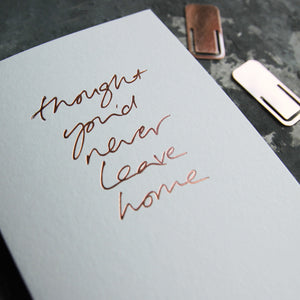 thought
you'd
never
leave
home